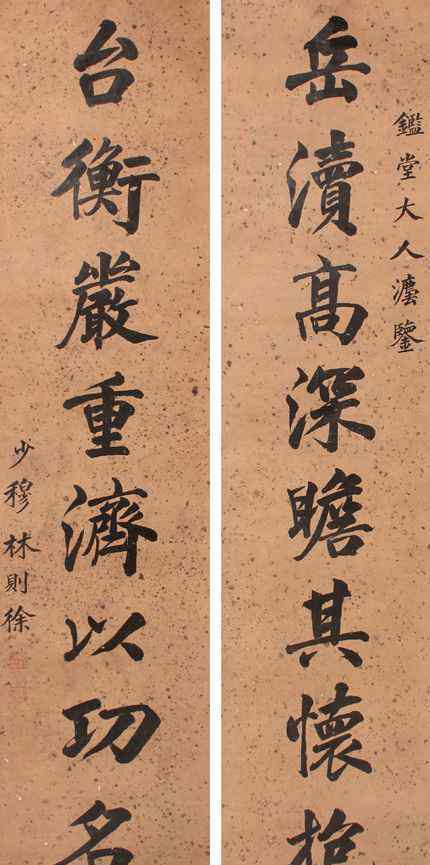 鑑堂大人灋鑒
岳瀆高深瞻其懷抱
台衡嚴重濟以功名
少穆林則徐